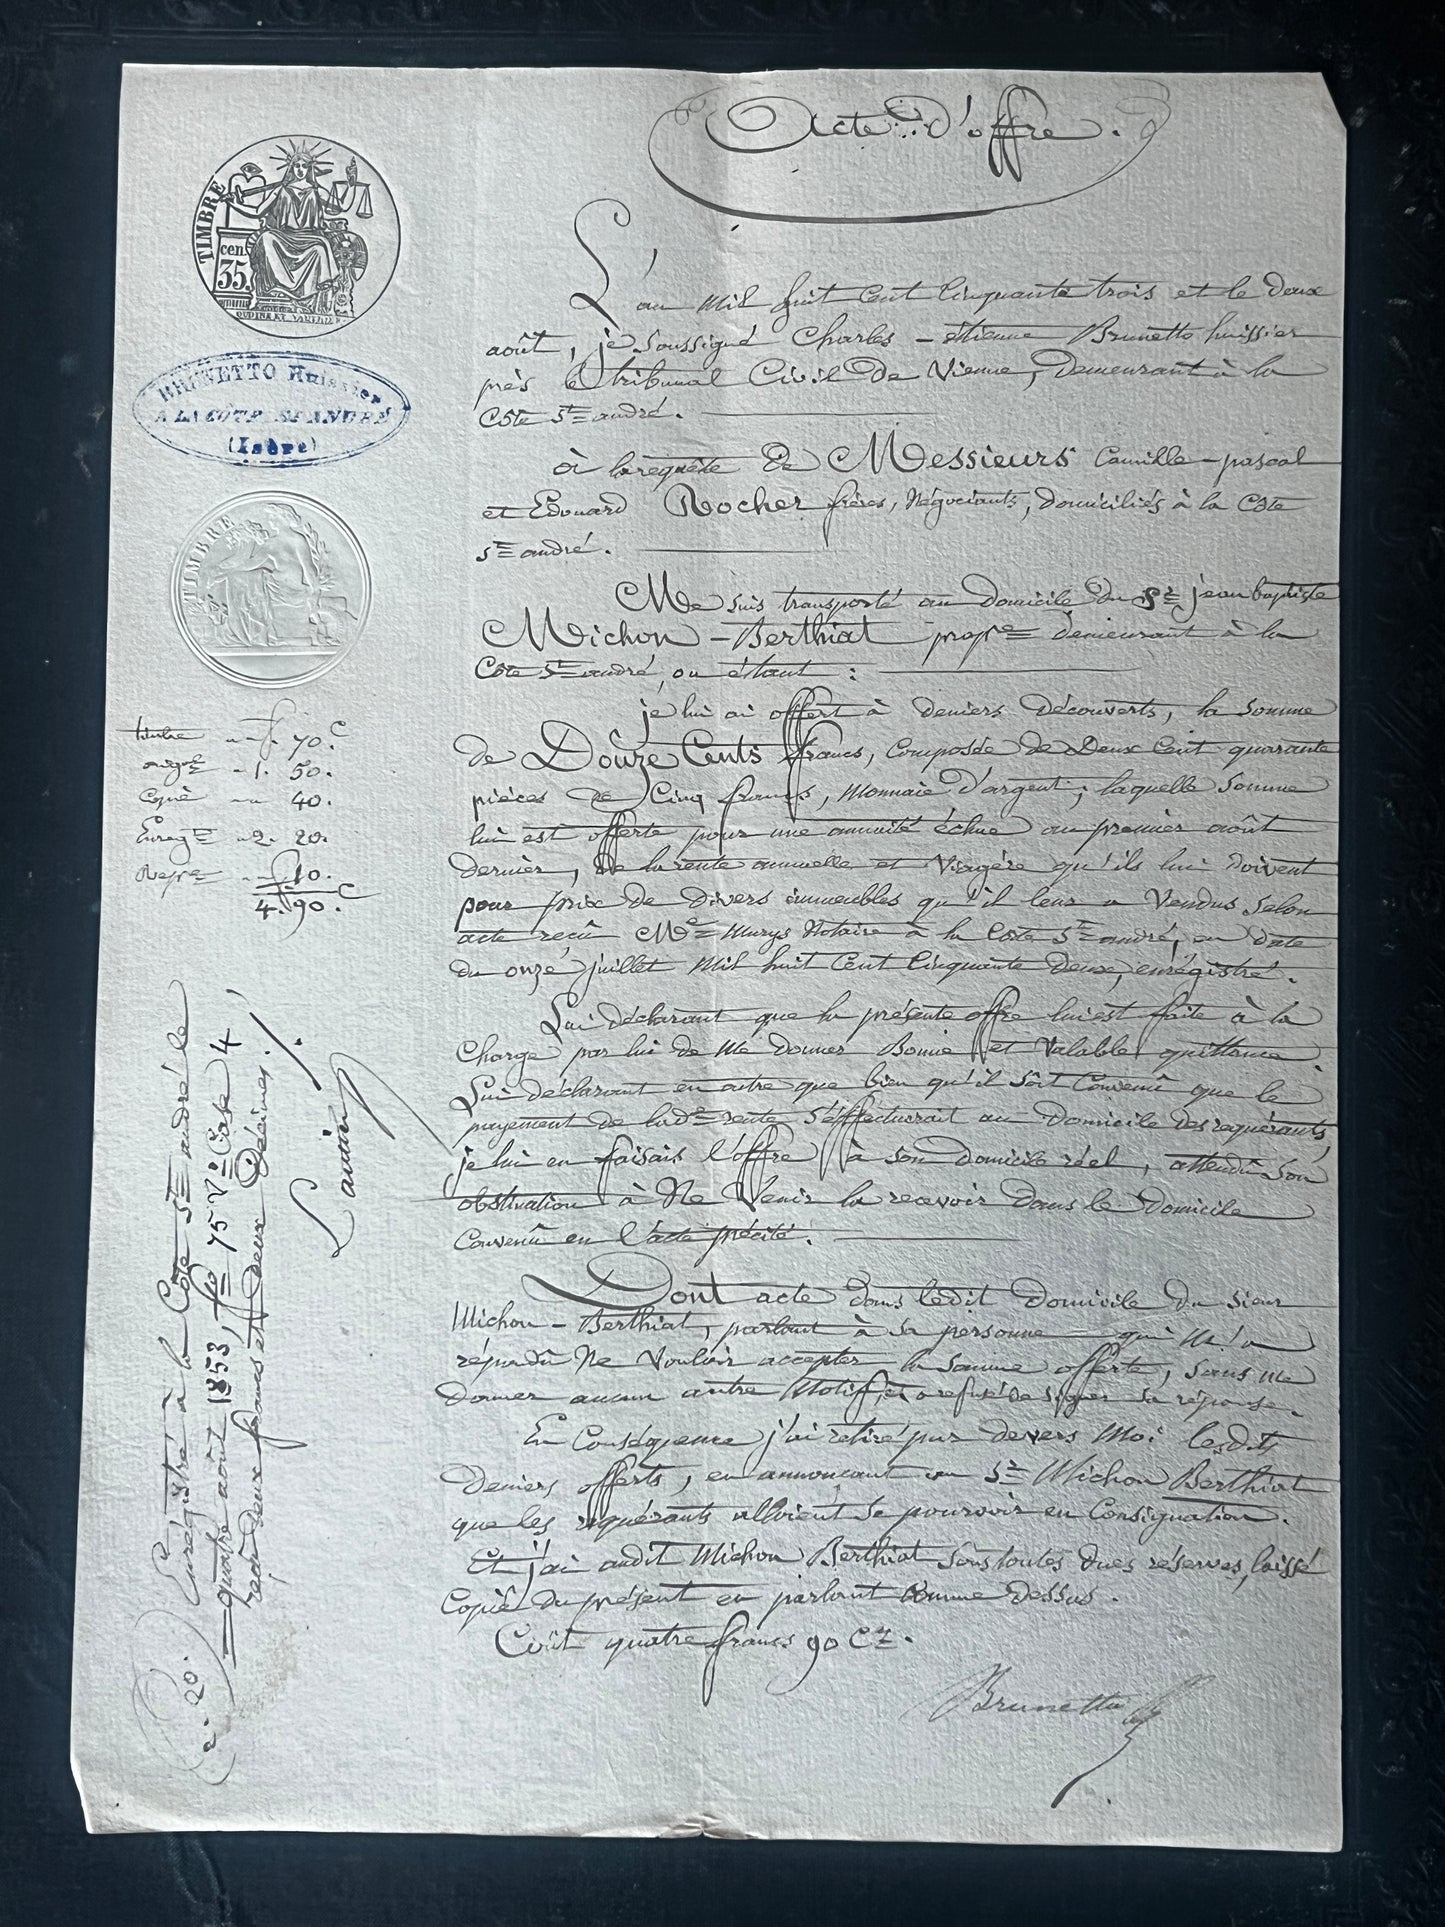 Acte d'offre.
TIMBRE
cen.
35.
BRUNETTO Huissier
A LA CÔTE ST ANDRÉ
(Isère)
TIMBRE
L'an mil huit cent cinquante trois et le deux
août, je soussigné Charles-étienne Brunetto huissier
près le tribunal Civil de Vienne, demeurant à la
Côte St andré.
à la requête de Messieurs Camille-pascal
et Edouard Rocher frères, Négociants, domiciliés à la Côte
St andré.
Me suis transporté au domicile du Sr jean baptiste
Michon-Berthiat propre demeurant à la
Côte St andré, ou étant :
je lui ai offert à deniers découverts, la somme
de Douze Cents francs, composée de Deux Cent quarante
pièces de Cinq francs, Monnaie d'argent; laquelle Somme
lui est offerte pour une annuité échue au premier août
dernier, de la rente annuelle et Viagère qu'ils lui doivent
pour prix de divers immeubles qu'il leur a Vendus Selon
acte recû Me Murys Notaire à la Côte St andré, en date
du onze juillet Mil huit Cent Cinquante Deux, enrégistré.
Lui déclarant que la présente offre lui est faite à la
Charge par lui de me donner Bonne et Valable quittance
Lui déclarant en outre que bien qu'il Soit Convenû que le
payement de lade rente S'éffectuerait au Domicile des requérants
je lui en faisais l'offre à son Domicile réel, attendû Son
obstination à Ne Venir la recevoir dans le Domicile
Convenû en l'acte précité.
Dont acte dans ledit domicile du Sieur
Michon-Berthiat, parlant à sa personne qui M'a
répondû Ne Vouloir accepter la Somme offerte, Sans me
donner aucun autre Motif, et a refusé de signer sa réponse.
En Conséquence j'ai retiré par devers Moi lesdits
Deniers offerts, en annoncant au Sr Michon Berthiat
que les requérants alloient se pourvoir en Consignation.
Et j'ai audit Michon Berthiat Sous toutes dues réserves, laissé
Copie du présent en parlant Comme dessus.
Coût quatre francs 90 Cs.
Brunetto
timbre " f. 70.c
origal 1. 50.
Copie " 40.
Enregt 2. 20.
Repre " 10.
f. 4. 90.c
Enrégistré à la Côte St andré le
quatre août 1853, fo 75 Vo Case 4
recû deux francs et deux Décimes.
2. 20.